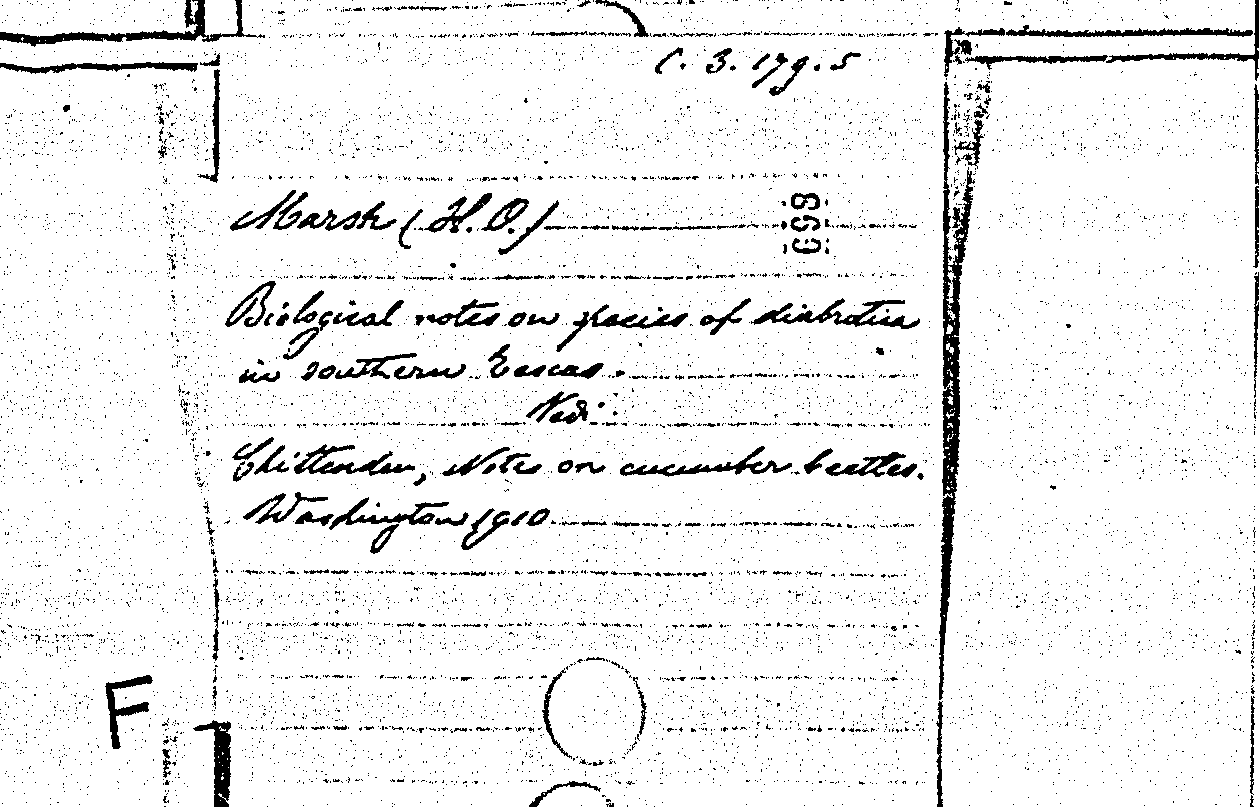 C. 3. 179. 5
Marsh (H. O.)
Biological notes on species of diabrotica
in southern Texas.
Vedi:
Chittenden, Notes on cucumber beetles.
Washington 1910
F